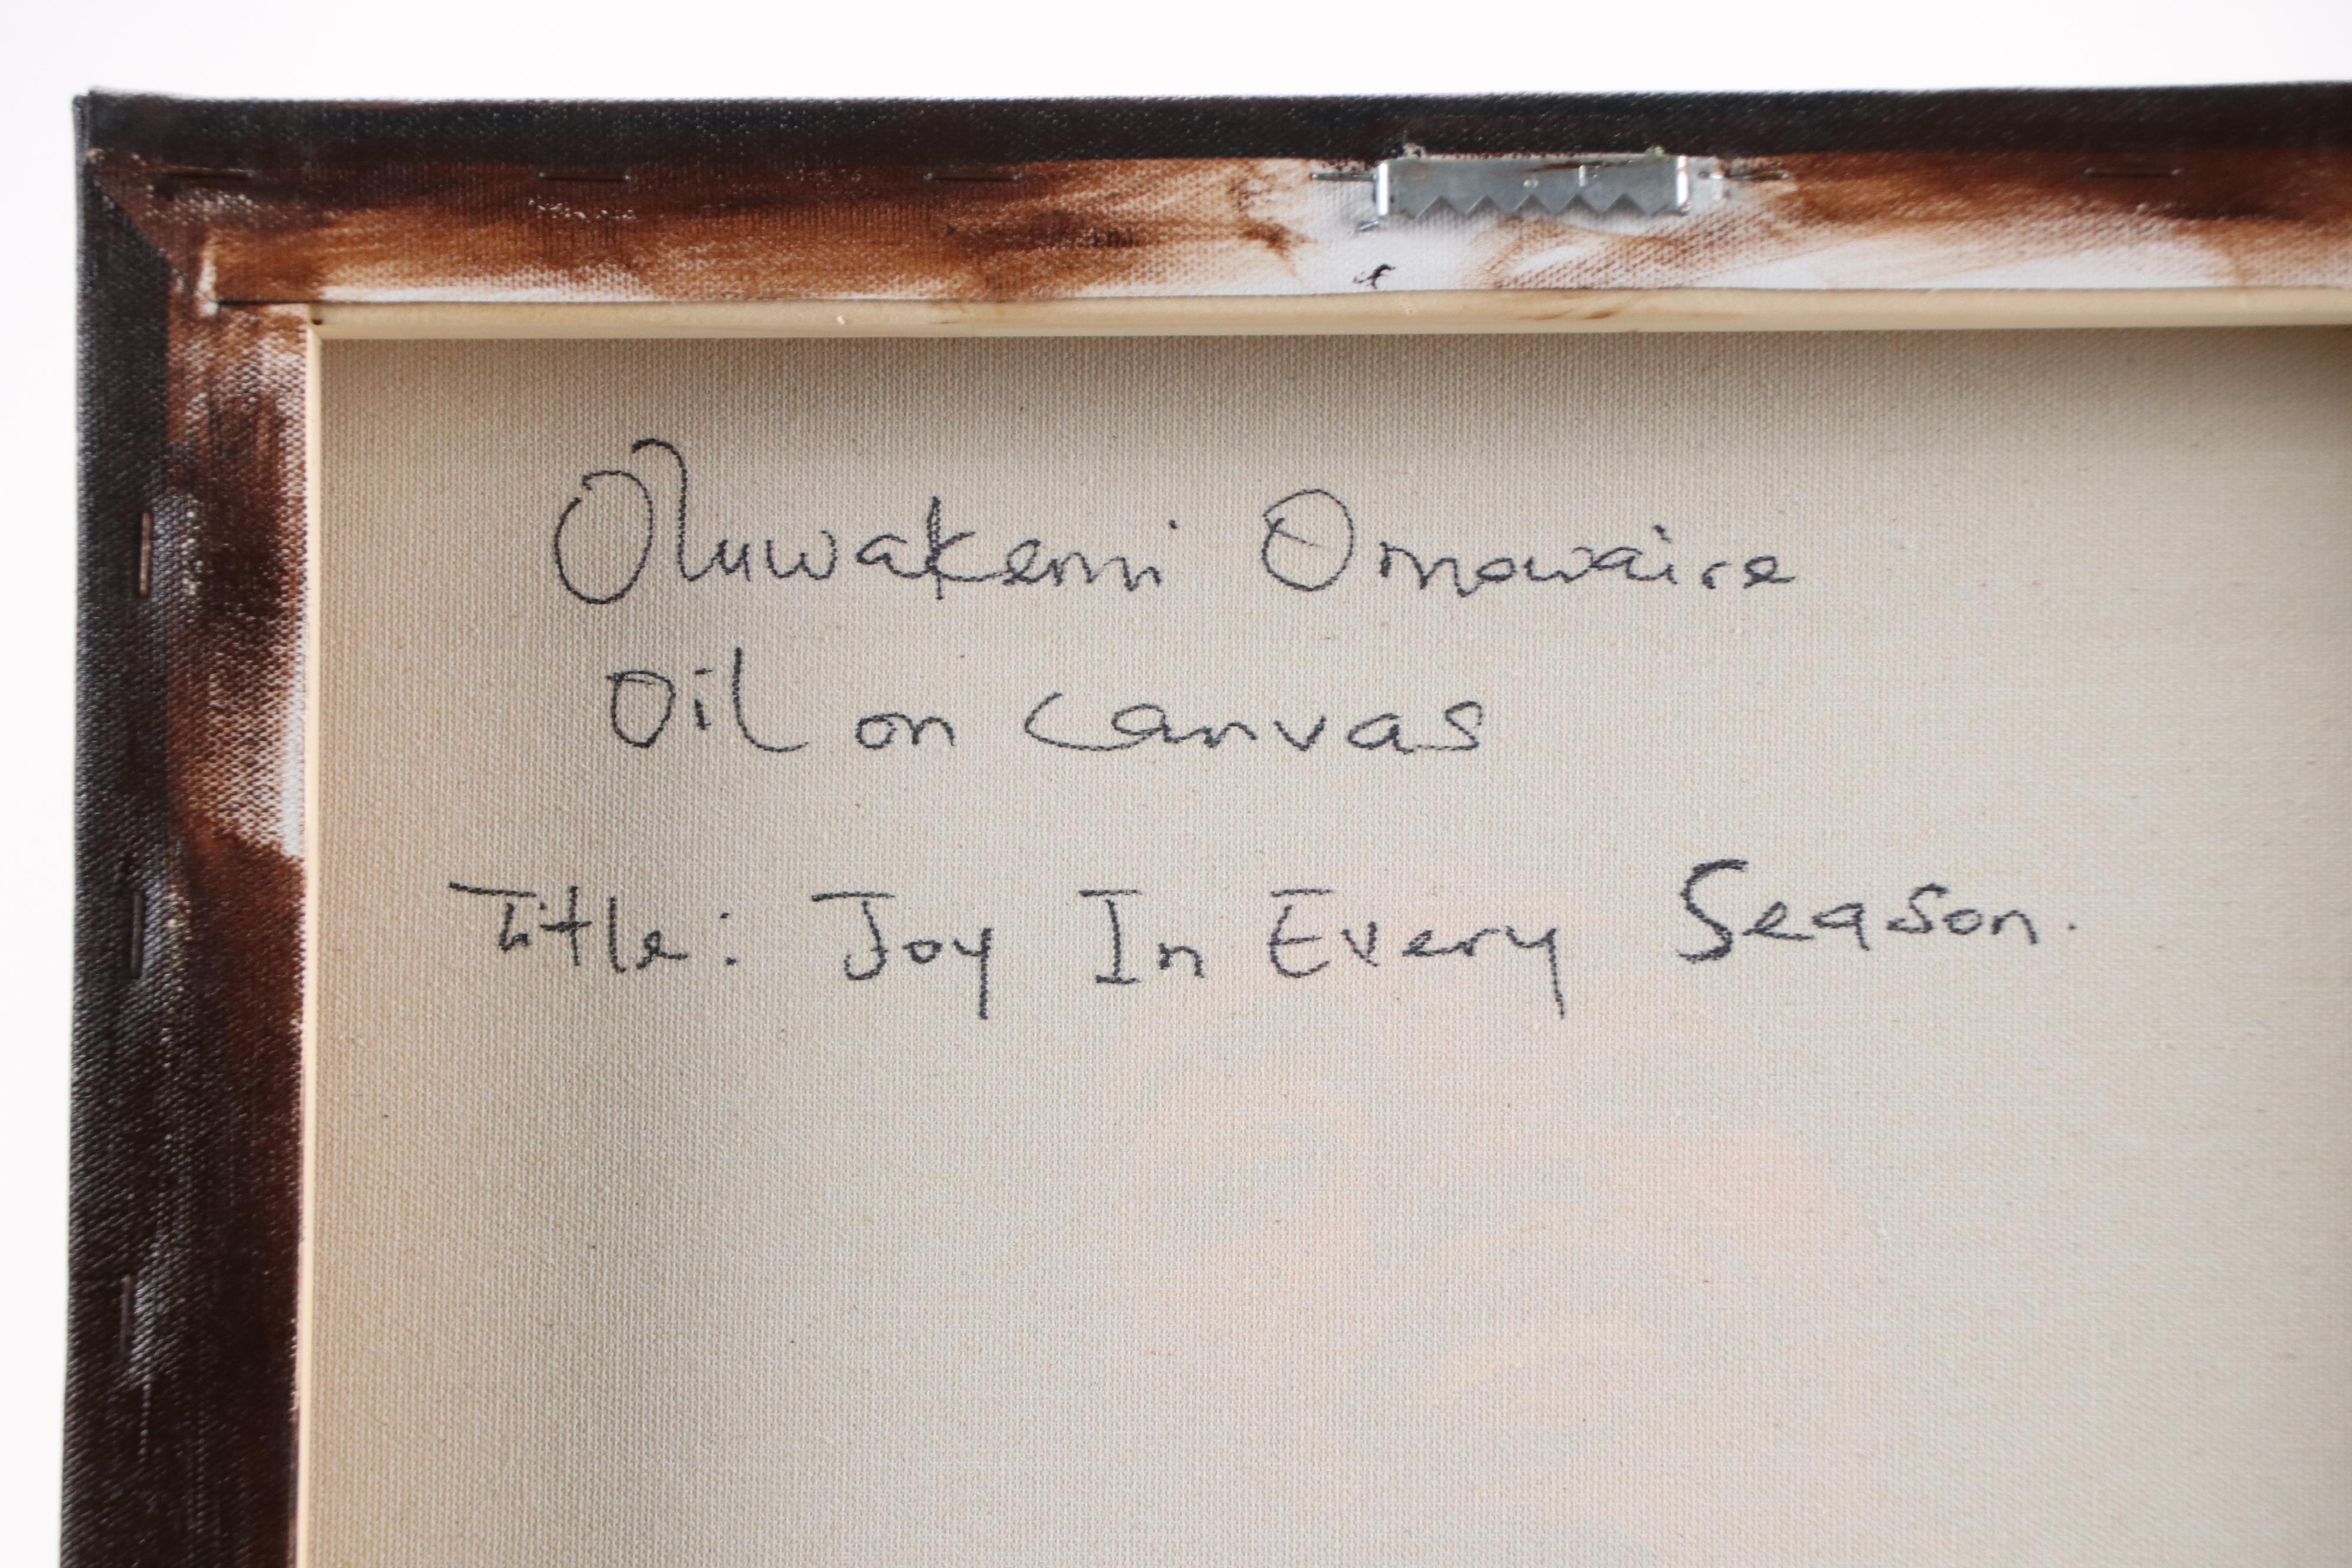 Oluwakemi Omowaire
Oil on canvas
Title: Joy In Every Season.